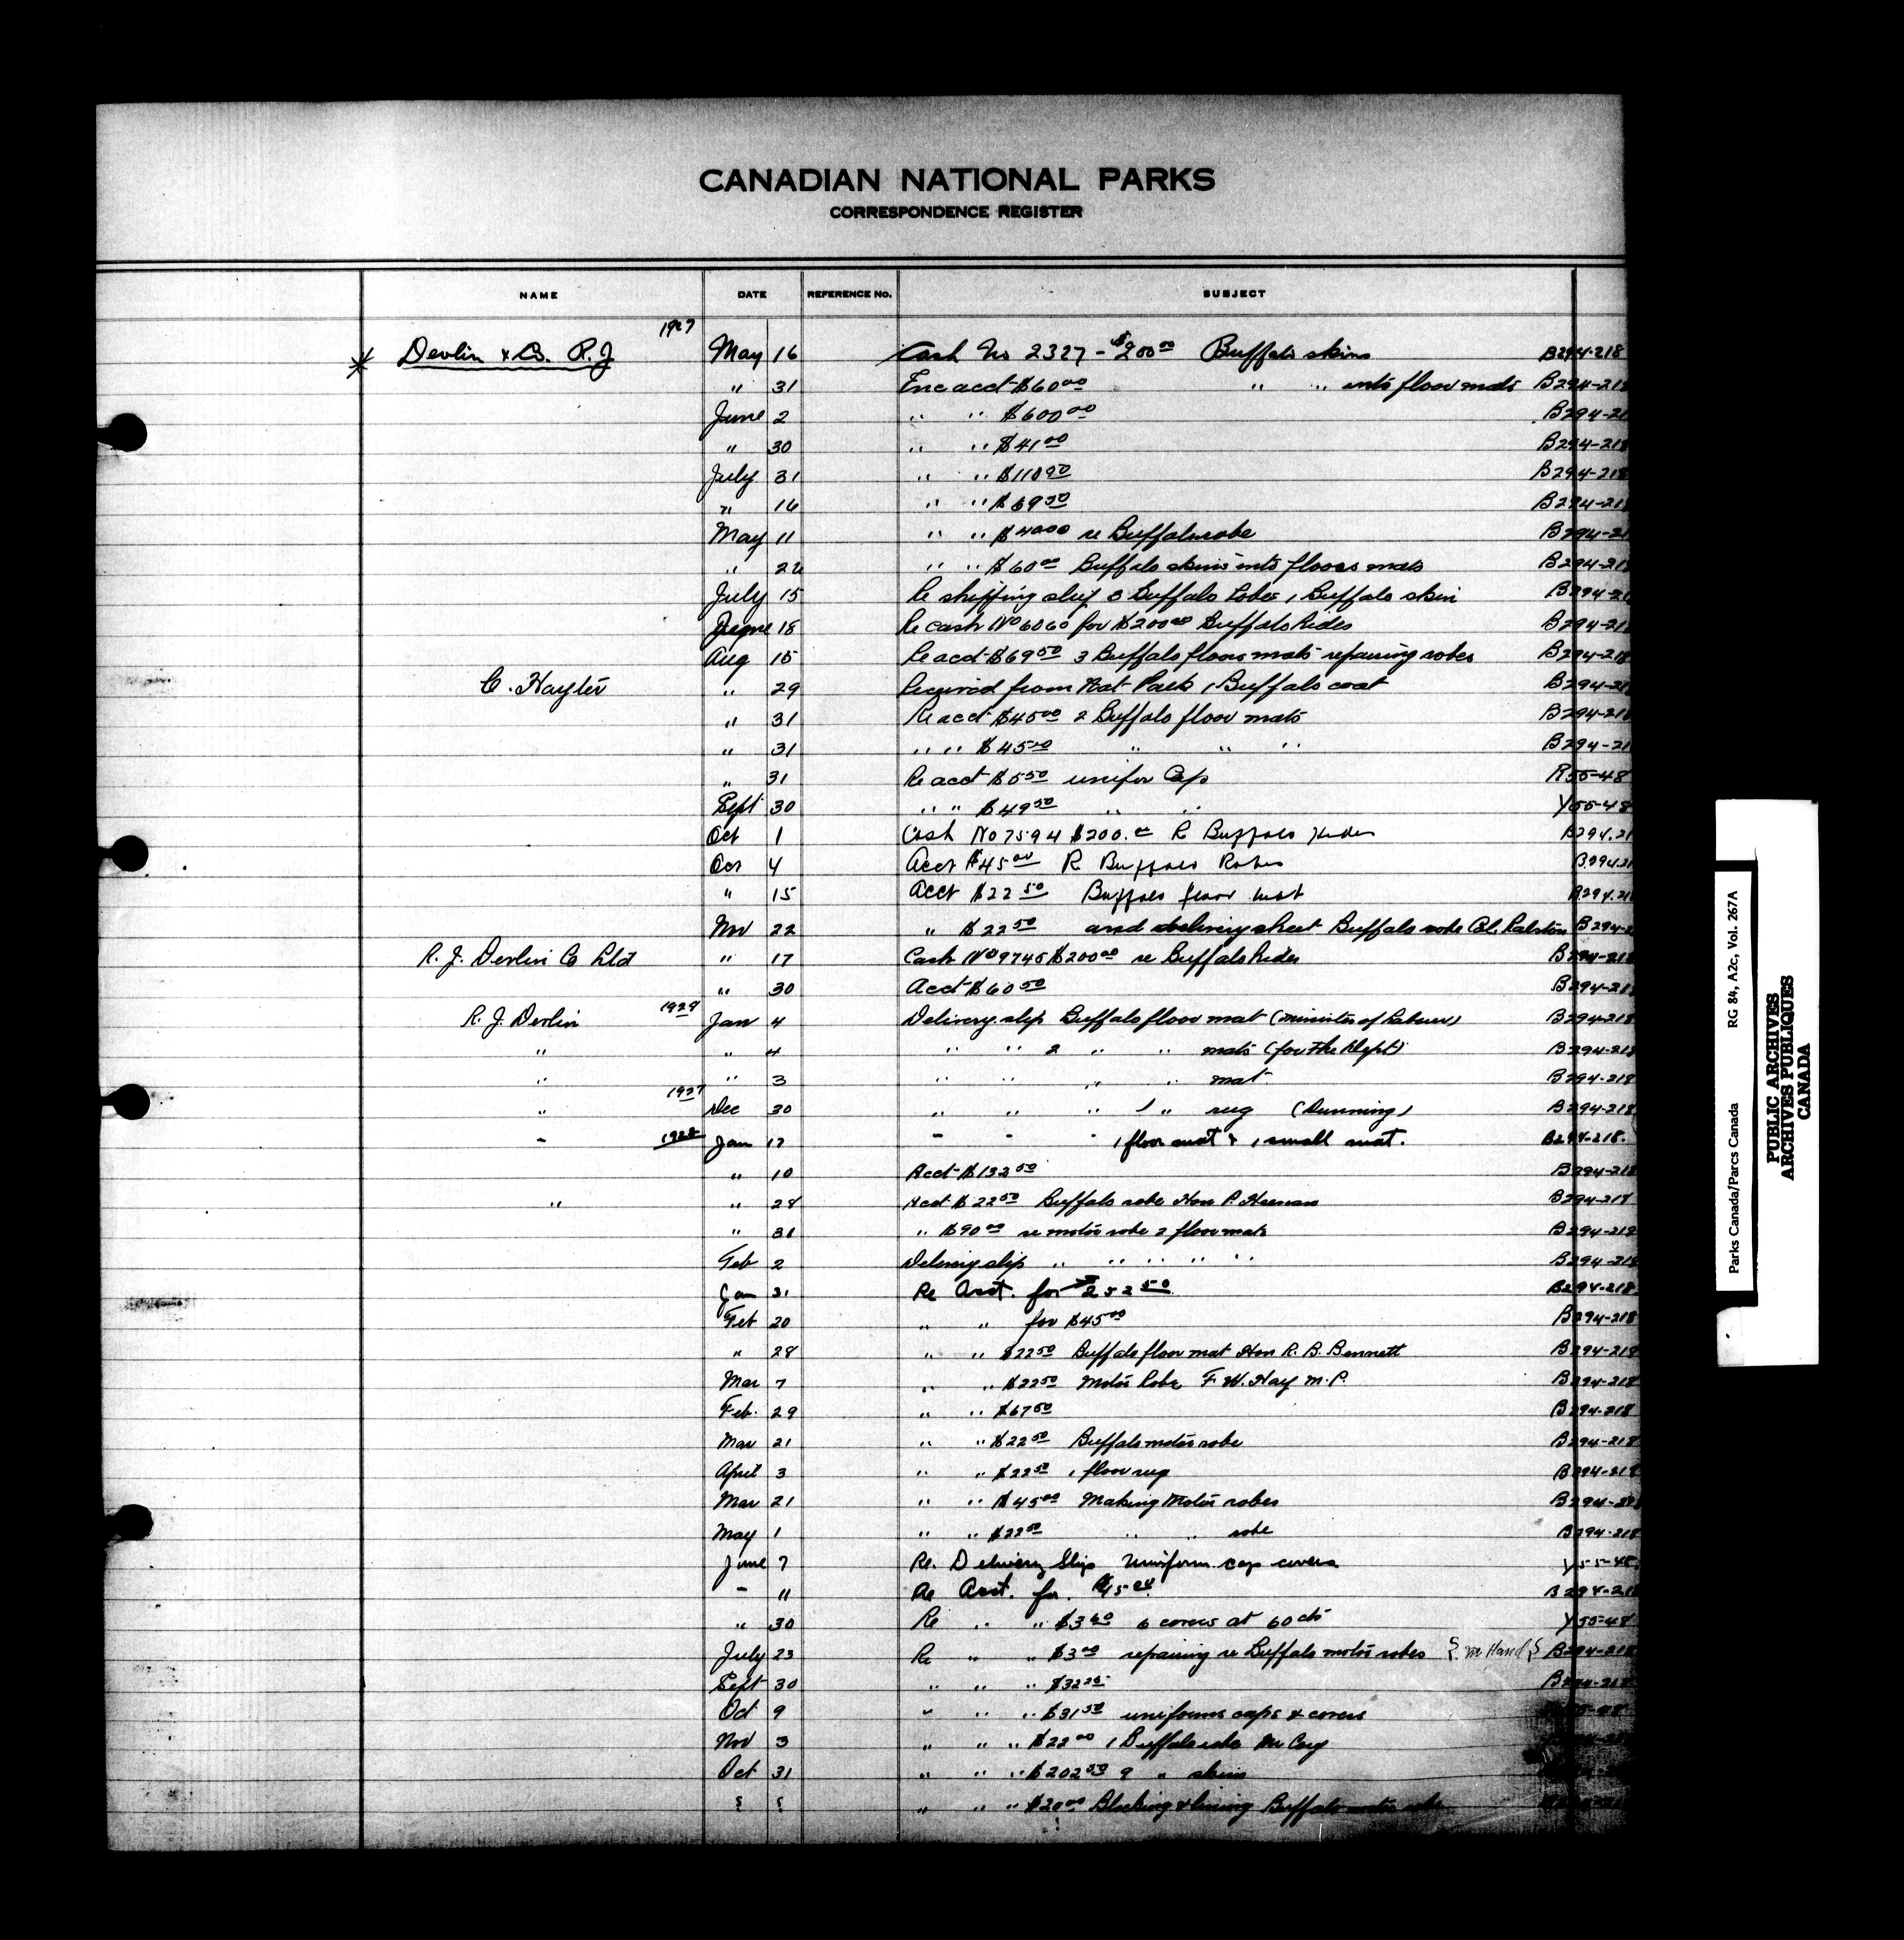 CANADIAN NATIONAL PARKS
CORRESPONDENCE REGISTER
NAME DATE REFERENCE No. SUBJECT
1927
Devlin & Co. R. J May 16 Cash No 2327 - $200 00 Buffalo skins B294-218
" 31 Enc acct $60 00 " " into floor mats B294-218
June 2 " " $600 00 B294-21
" 30 " " $41 00 B294-218
July 31 " " $110 00 B294-218
" 16 " " $69 50 B294-218
May 11 " " $40 00 re Buffalo robe B294-21
" 26 " " $60 00 Buffalo skins into floors mats B294-218
July 15 Re shipping slip 3 Buffalo robes 1 Buffalo skin B294-21
June 18 Re cash No 6060 for $200 00 Buffalo Hides B294-218
Aug 15 Re acct $69 50 3 Buffalo floor mats repairing robes B294-218
C. Hayter " 29 Received from Nat Park 1 Buffalo coat B294-218
" 31 Re acct $45 00 2 Buffalo floor mats B294-218
" 31 " " $45 00 " " " B294-21
" 31 Re acct $5 50 unifor Cap R55-48
Sept 30 " " $49 50 " " Y55-48
Oct 1 Cash No 7594 $200.00 R Buffalo Hides B294.21
Oct 4 Acct $45 00 R Buffalo Robes B294.21
" 15 Acct $22 50 Buffalo floor mat B294.21
Nov 22 " $22 50 and delivery sheet Buffalo robe Col. Ralston B294-2
R. J. Devlin Co Ltd " 17 Cash No 9745 $200 00 re Buffalo Hides B294-218
" 30 Acct $60 50 B294-218
R. J. Devlin 1929 Jan 4 Delivery slip Buffalo floor mat (Minister of Labour) B294-218
" " 4 " " 2 " " mats (for the Dept) B294-218
" " 3 " " " " mat B294-218
" 1927 Dec 30 " " " 1 " rug (Dunning) B294-218
- 1928 Jan 17 - - - 1 floor mat & 1 small mat. B294-218.
" 10 Acct $132 50 B294-218
" " 28 Acct $22 50 Buffalo robe Hon P. Heenan B294-218
" 31 " $90 00 re motor robe 2 floor mats B294-218
Feb 2 Delivery slip " " " " " B294-218
Jan 31 Re Acct. for 252 50 B294-218
Feb 20 " " for $45 00 B294-218
" 28 " " $22 50 Buffalo floor mat Hon R. B. Bennett B294-218
Mar 7 " " $22 50 Motor Robe F. W. Hay M. P. B294-218
Feb. 29 " " $67 50 B294-218
Mar 21 " " $22 50 Buffalo motor robe B294-218
April 3 " " $22 50 1 floor rug B294-218
Mar 21 " " $45 00 Making Motor robes B294-218
May 1 " " $22 50 " " robe B294-218
June 7 Re. Delivery Slip Uniform cap covers Y55-48
- 11 Re Acct. for $45 00 B294-218
" 30 Re " " $3 60 6 covers at 60 cts Y55-48
July 23 Re " " $3 00 repairing re Buffalo motor robes B294-218
Sept 30 " " " $32 25 B294-218
Oct 9 " " " $31 50 uniforms caps & covers
Nov 3 " " " $22 00 1 Buffalo robe
Oct 31 " " " $202 50 9 " skins
" " " $20 00 Blocking & lining Buffalo motor robe
Parks Canada/Parcs Canada RG 84, A2c, Vol. 267A
PUBLIC ARCHIVES
ARCHIVES PUBLIQUES
CANADA